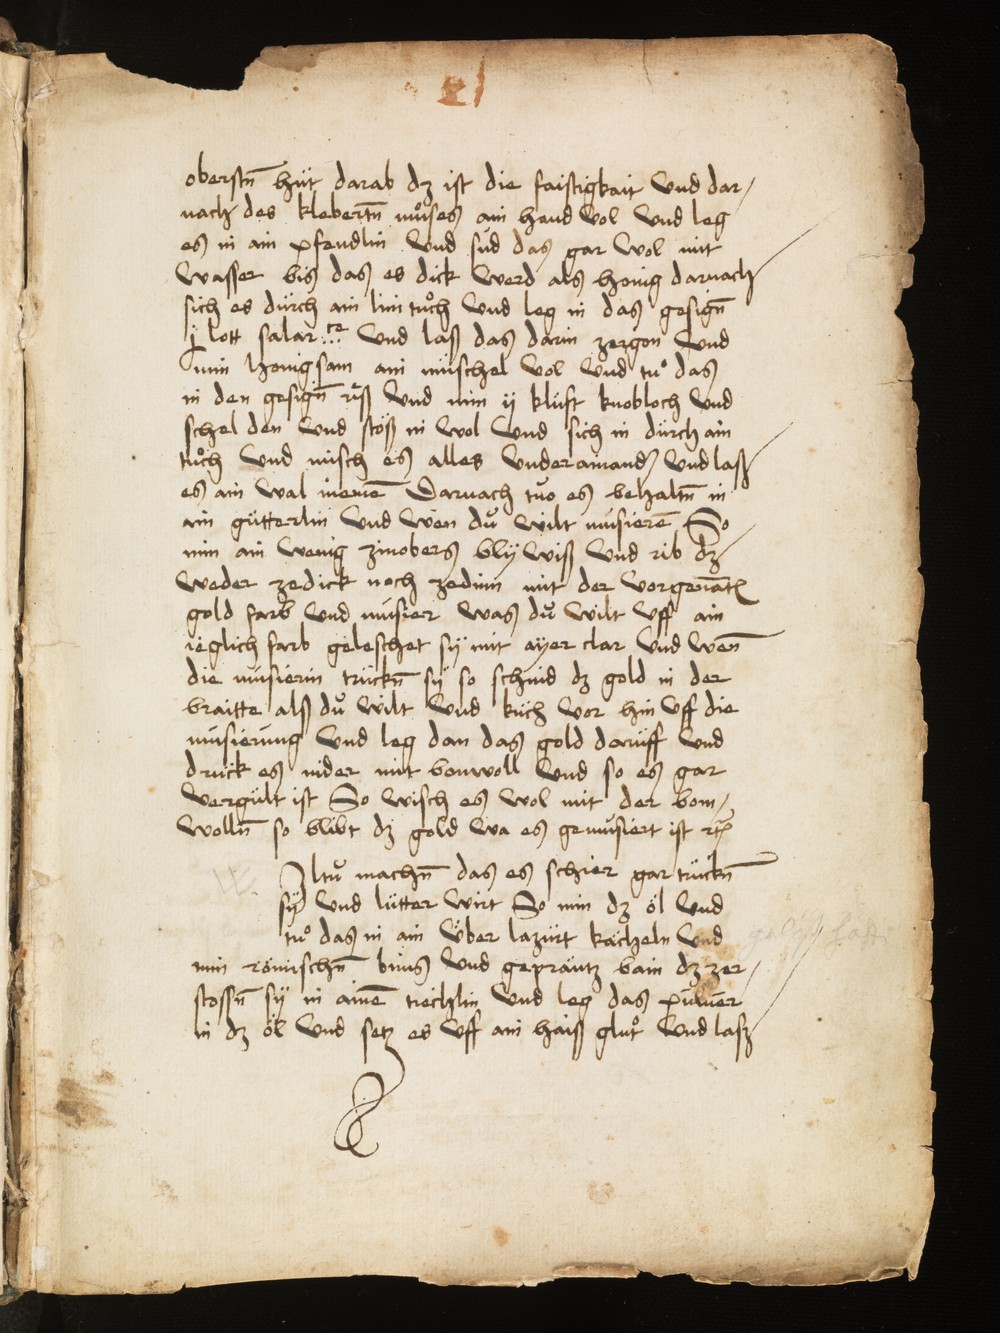 oberstn̄ hüt darab dz ist die faistigkait Vnd dar/
nach des klebertn̄ můses ain hand vol Vnd leg
es in ain pfendlin Vnd süd das gar wol mit
wasser bis das es dick werd als honig darnach
sich es dürch ain lini tůch Vnd leg in das gesign̄
j lott salar Vnd laß das darin zergon Vnd
nim honigsam ain müschel vol Vnd tů das
in den gesign̄ Vnd nim ij klüft knobloch Vnd
schel den Vnd stöß in wol Vnd sich in dürch ain
tůch Vnd misch es alles Vnderainander Vnd laß
es ain wal Darnach tůo es behaltn̄ in
ain gütterlin Vnd wen dů wilt musierē So
nim ain wenig zinobers bly wiß Vnd rib dz
weder zedick noch zedinn mit der
gold farb Vnd musier was dů wilt Vff ain
ieglich farb geleschet sy mit ayer clar Vnd wen̄
die musierin trückn̄ sy so schnid dz gold in der
braitte alß dů wilt Vnd küch vor hin Vff die
musierung Vnd leg dan das gold darüff Vnd
druck es nider mit bonwoll Vnd so es gar
vergült ist So wisch es wol mit der bom/
wolln̄ so blibt dz gold wa es gemusiert ist
machn̄ das es schier gar trückn̄
sy Vnd lütter wirt So nim dz öl Vnd
tů das in ain Über lazürt kächeln Vnd
nim römischn̄ bims Vnd geprantz bain dz zer/
stossn̄ sy in ainē Vnd leg das puluer
in dz öl Vnd setz es Vff ain haiß glůt Vnd lasz